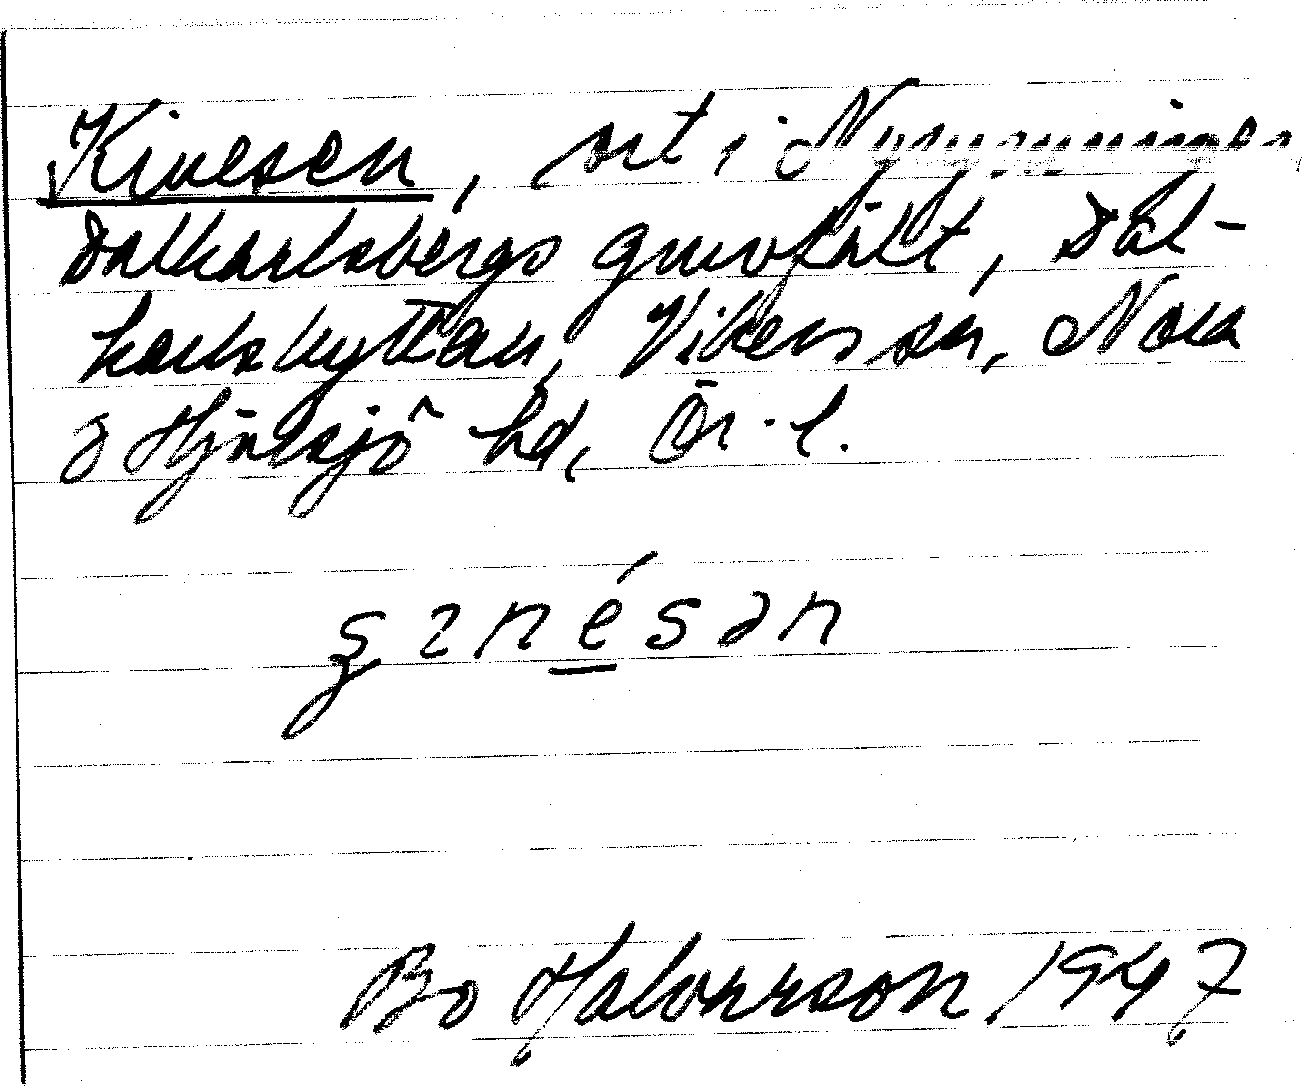 Kinesen, ort i Nygruvan,
Dalkarlsbergs gruvfält, Dal-
karlshyttan, Vikers sn, Nora
o Hjulsjö hd, Ör. l.
ʂɪnésən
Bo Halvarsson 1947